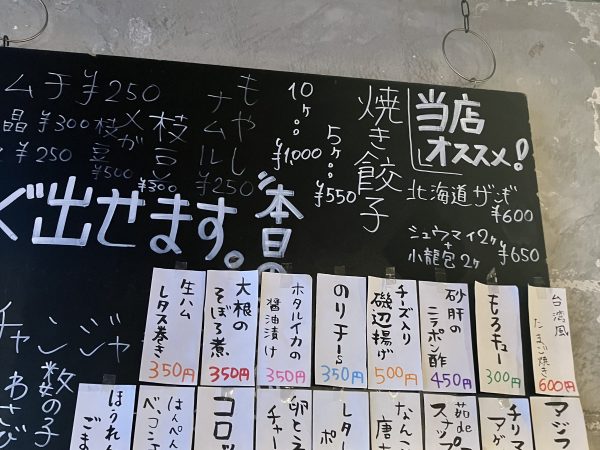 当店
オススメ!
北海道ザンギ
¥600
シュウマイ2ヶ
+
小龍包2ヶ
¥650
焼き餃子
5ヶ…
¥550
10ヶ…
¥1,000
もやし
ナムル
¥250
枝豆
¥300
メガ
枝豆
¥500
ムチ¥250
晶¥300
¥250
ぐ出せます。
"本日の
チャンジャ
数の子
わさび
台湾風
たまご焼き
600円
もろキュー
300円
砂肝の
ニラポン酢
450円
チーズ入り
磯辺揚げ
500円
のりチーs
350円
ホタルイカの
醤油漬け
350円
大根の
そぼろ煮
350円
生ハム
レタス巻き
350円
マジ
チリマ
マゲ
茹de
スナップ
なんこ
唐
レタ
ポ
卵とえ
チャー
コロッ
はんぺん
ベーコン
ほうれん
ごま